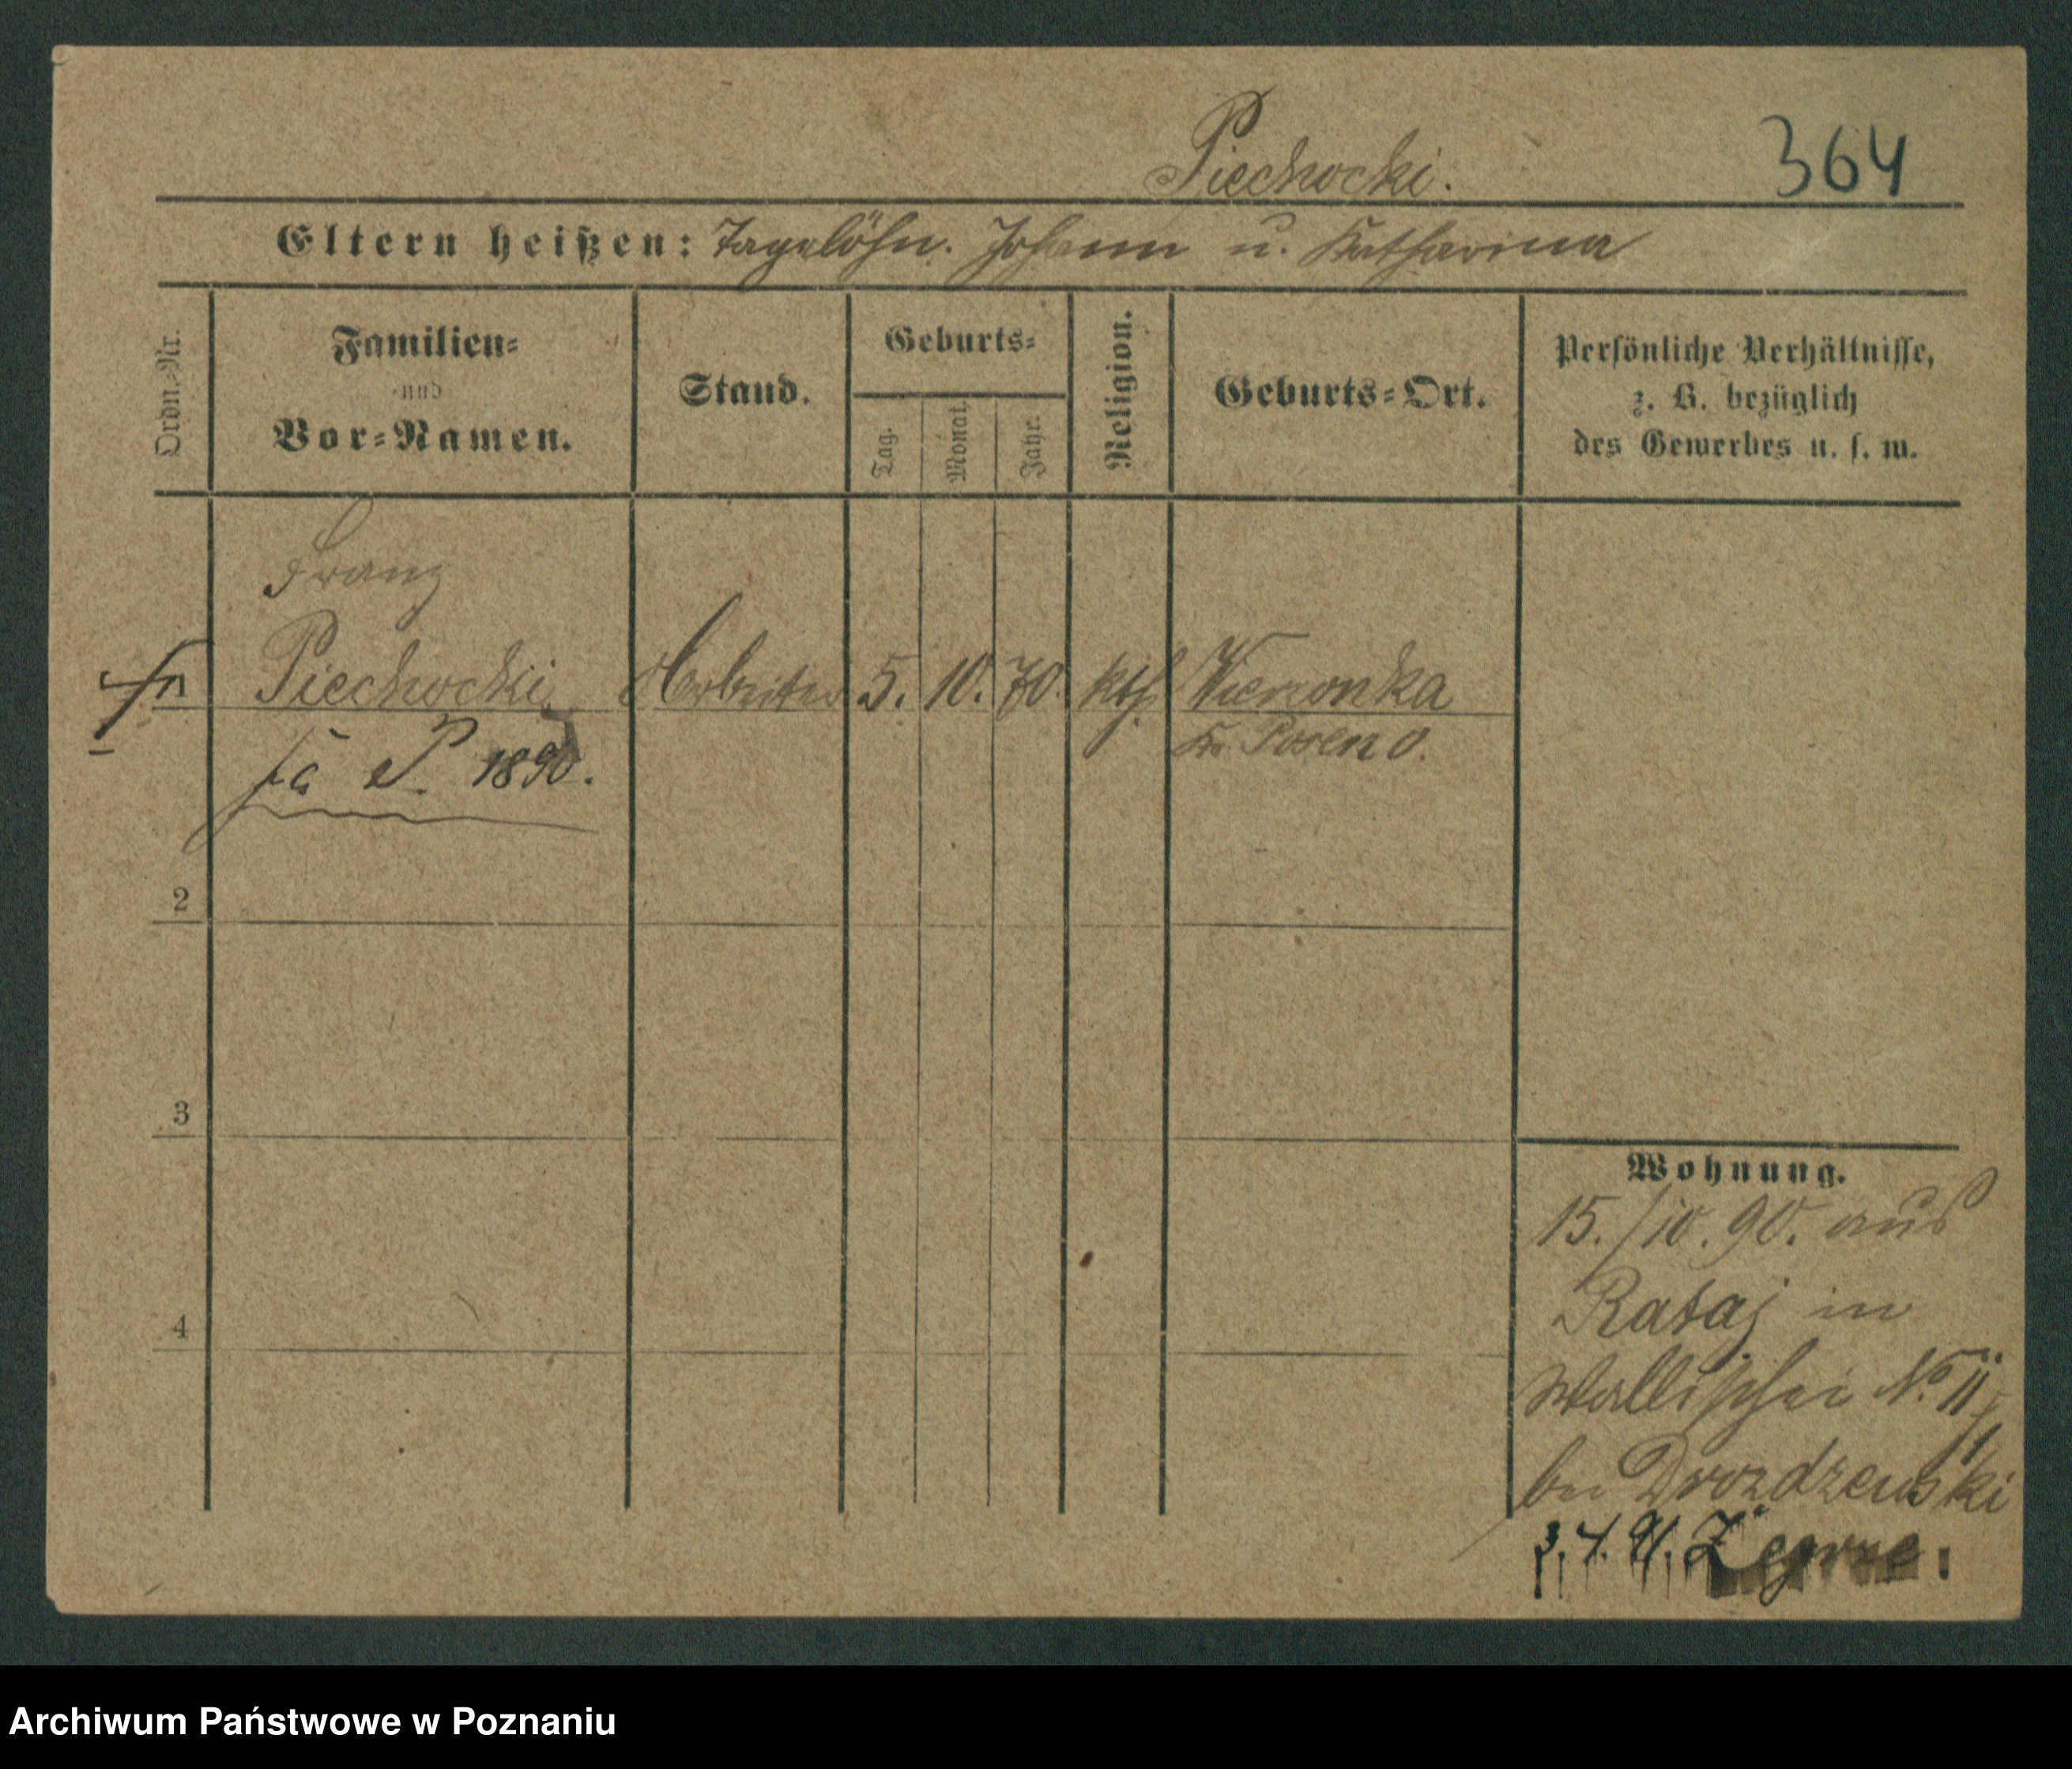 Piechocki.
364
Eltern heißen: Tagelöhn. Johann u. Katharina
Ordn.-Nr.
Familien-
und
Vor-Namen.
Stand.
Geburts-
Tag.
Monat.
Jahr.
Religion.
Geburts-Ort.
Persönliche Verhältnisse,
z. B. bezüglich
des Gewerbes u. s. w.
Franz
Piechocki Arbeiter 5. 10. 70. kth Wieronka
Kr. Posen O.
P. 1890.
2
3
4
Wohnung.
15./10. 90. aus
Rataj in
Wallischei No. 11
bei Drozdzewski
3. 4. 91. Zegrze.
Archiwum Państwowe w Poznaniu